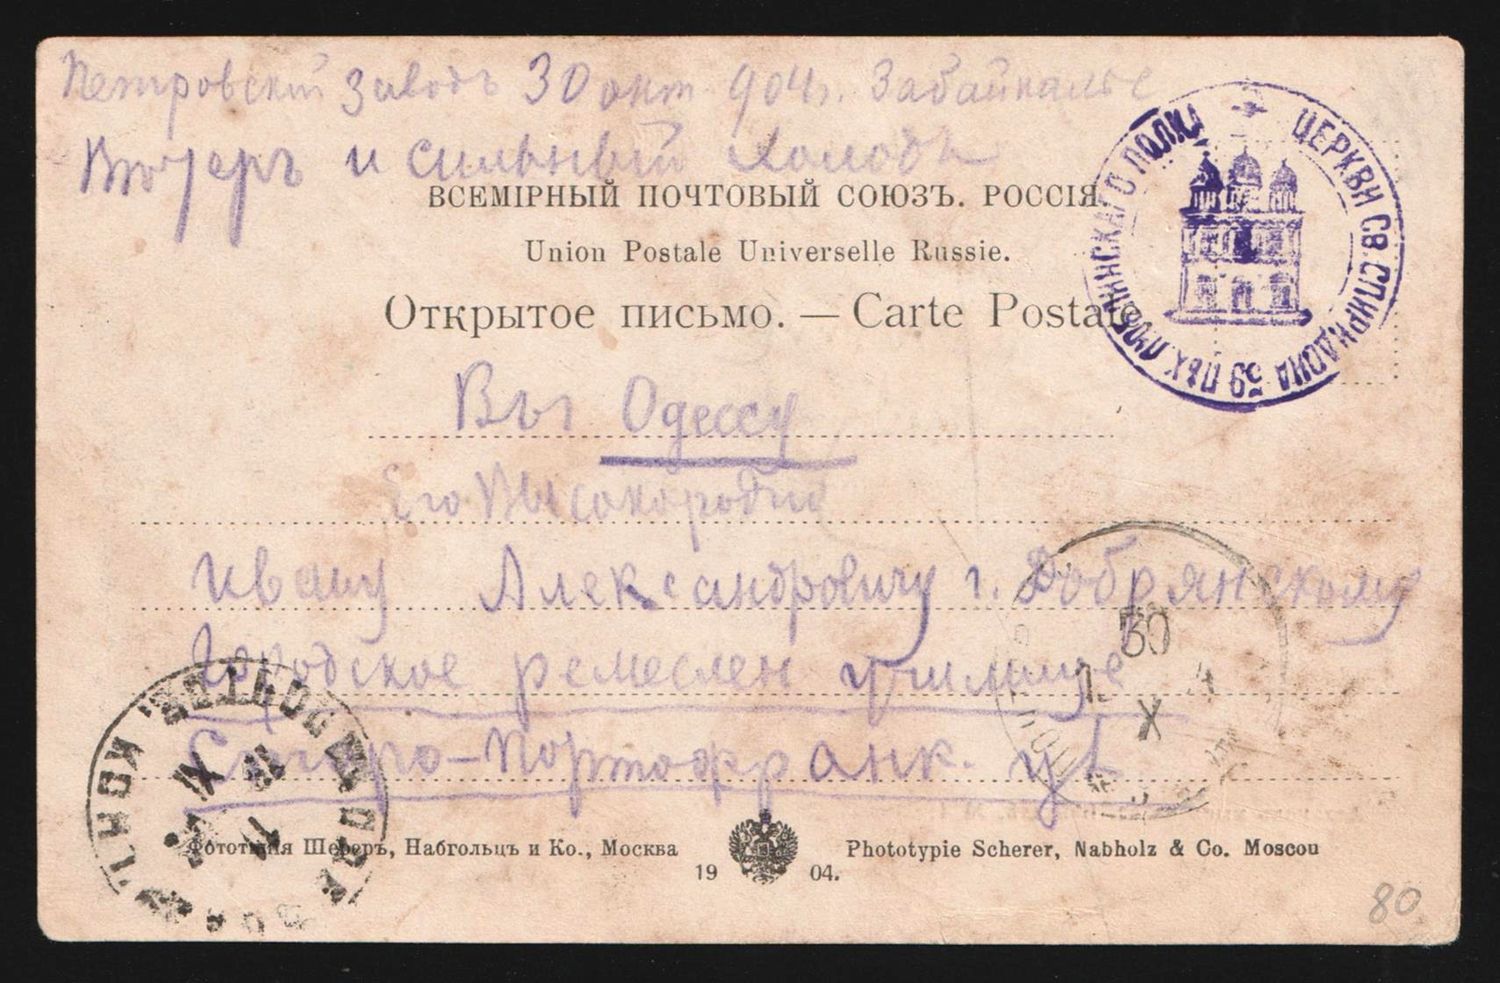 Петровскій Заводъ 30 окт 904 г. Забайкалье
Вѣтеръ и сильный холодъ
ВСЕМІРНЫЙ ПОЧТОВЫЙ СОЮЗЪ. РОССІЯ.
Union Postale Universelle Russie.
Открытое письмо. — Carte Postale
ЦЕРКВИ СВ. СПИРИДОНА 59 ПѢХ. ЛЮБЛИНСКАГО ПОЛКА
Въ Одессу
Его Высокородію
Ивану Александровичу г. Добрянскому
Городское ремеслен училище
Старо-Портофранк. ул
30
X
Фототипія Шереръ, Набгольцъ и Ко., Москва
Phototypie Scherer, Nabholz & Co. Moscou
19 04.
80